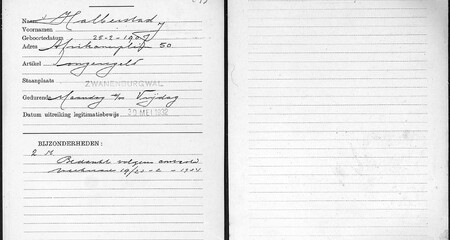 Naam Halberstad
Voornamen
Geboortedatum 28-2-1907
Adres Afrikanerplein 50
Artikel Longengeld
Staanplaats ZWANENBURGWAL
Gedurende Maandag t/m Vrijdag
Datum uitreiking legitimatiebewijs 29 MEI 1932
BIJZONDERHEDEN:
2 M
Bedankt volgens
19/21-2-1934